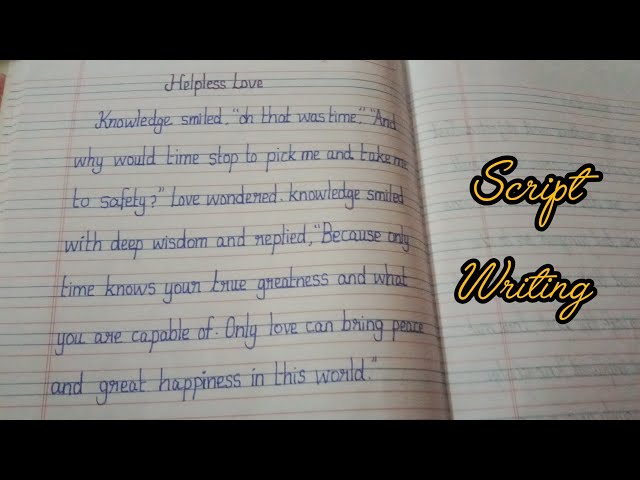 Helpless Love
Knowledge smiled, "oh that was time." "And
why would time stop to pick me and take me
to safety?" Love wondered. knowledge smiled
with deep wisdom and replied, "Because only
time knows your true greatness and what
you are capable of. Only love can bring peace
and great happiness in this world."
Script
Writing